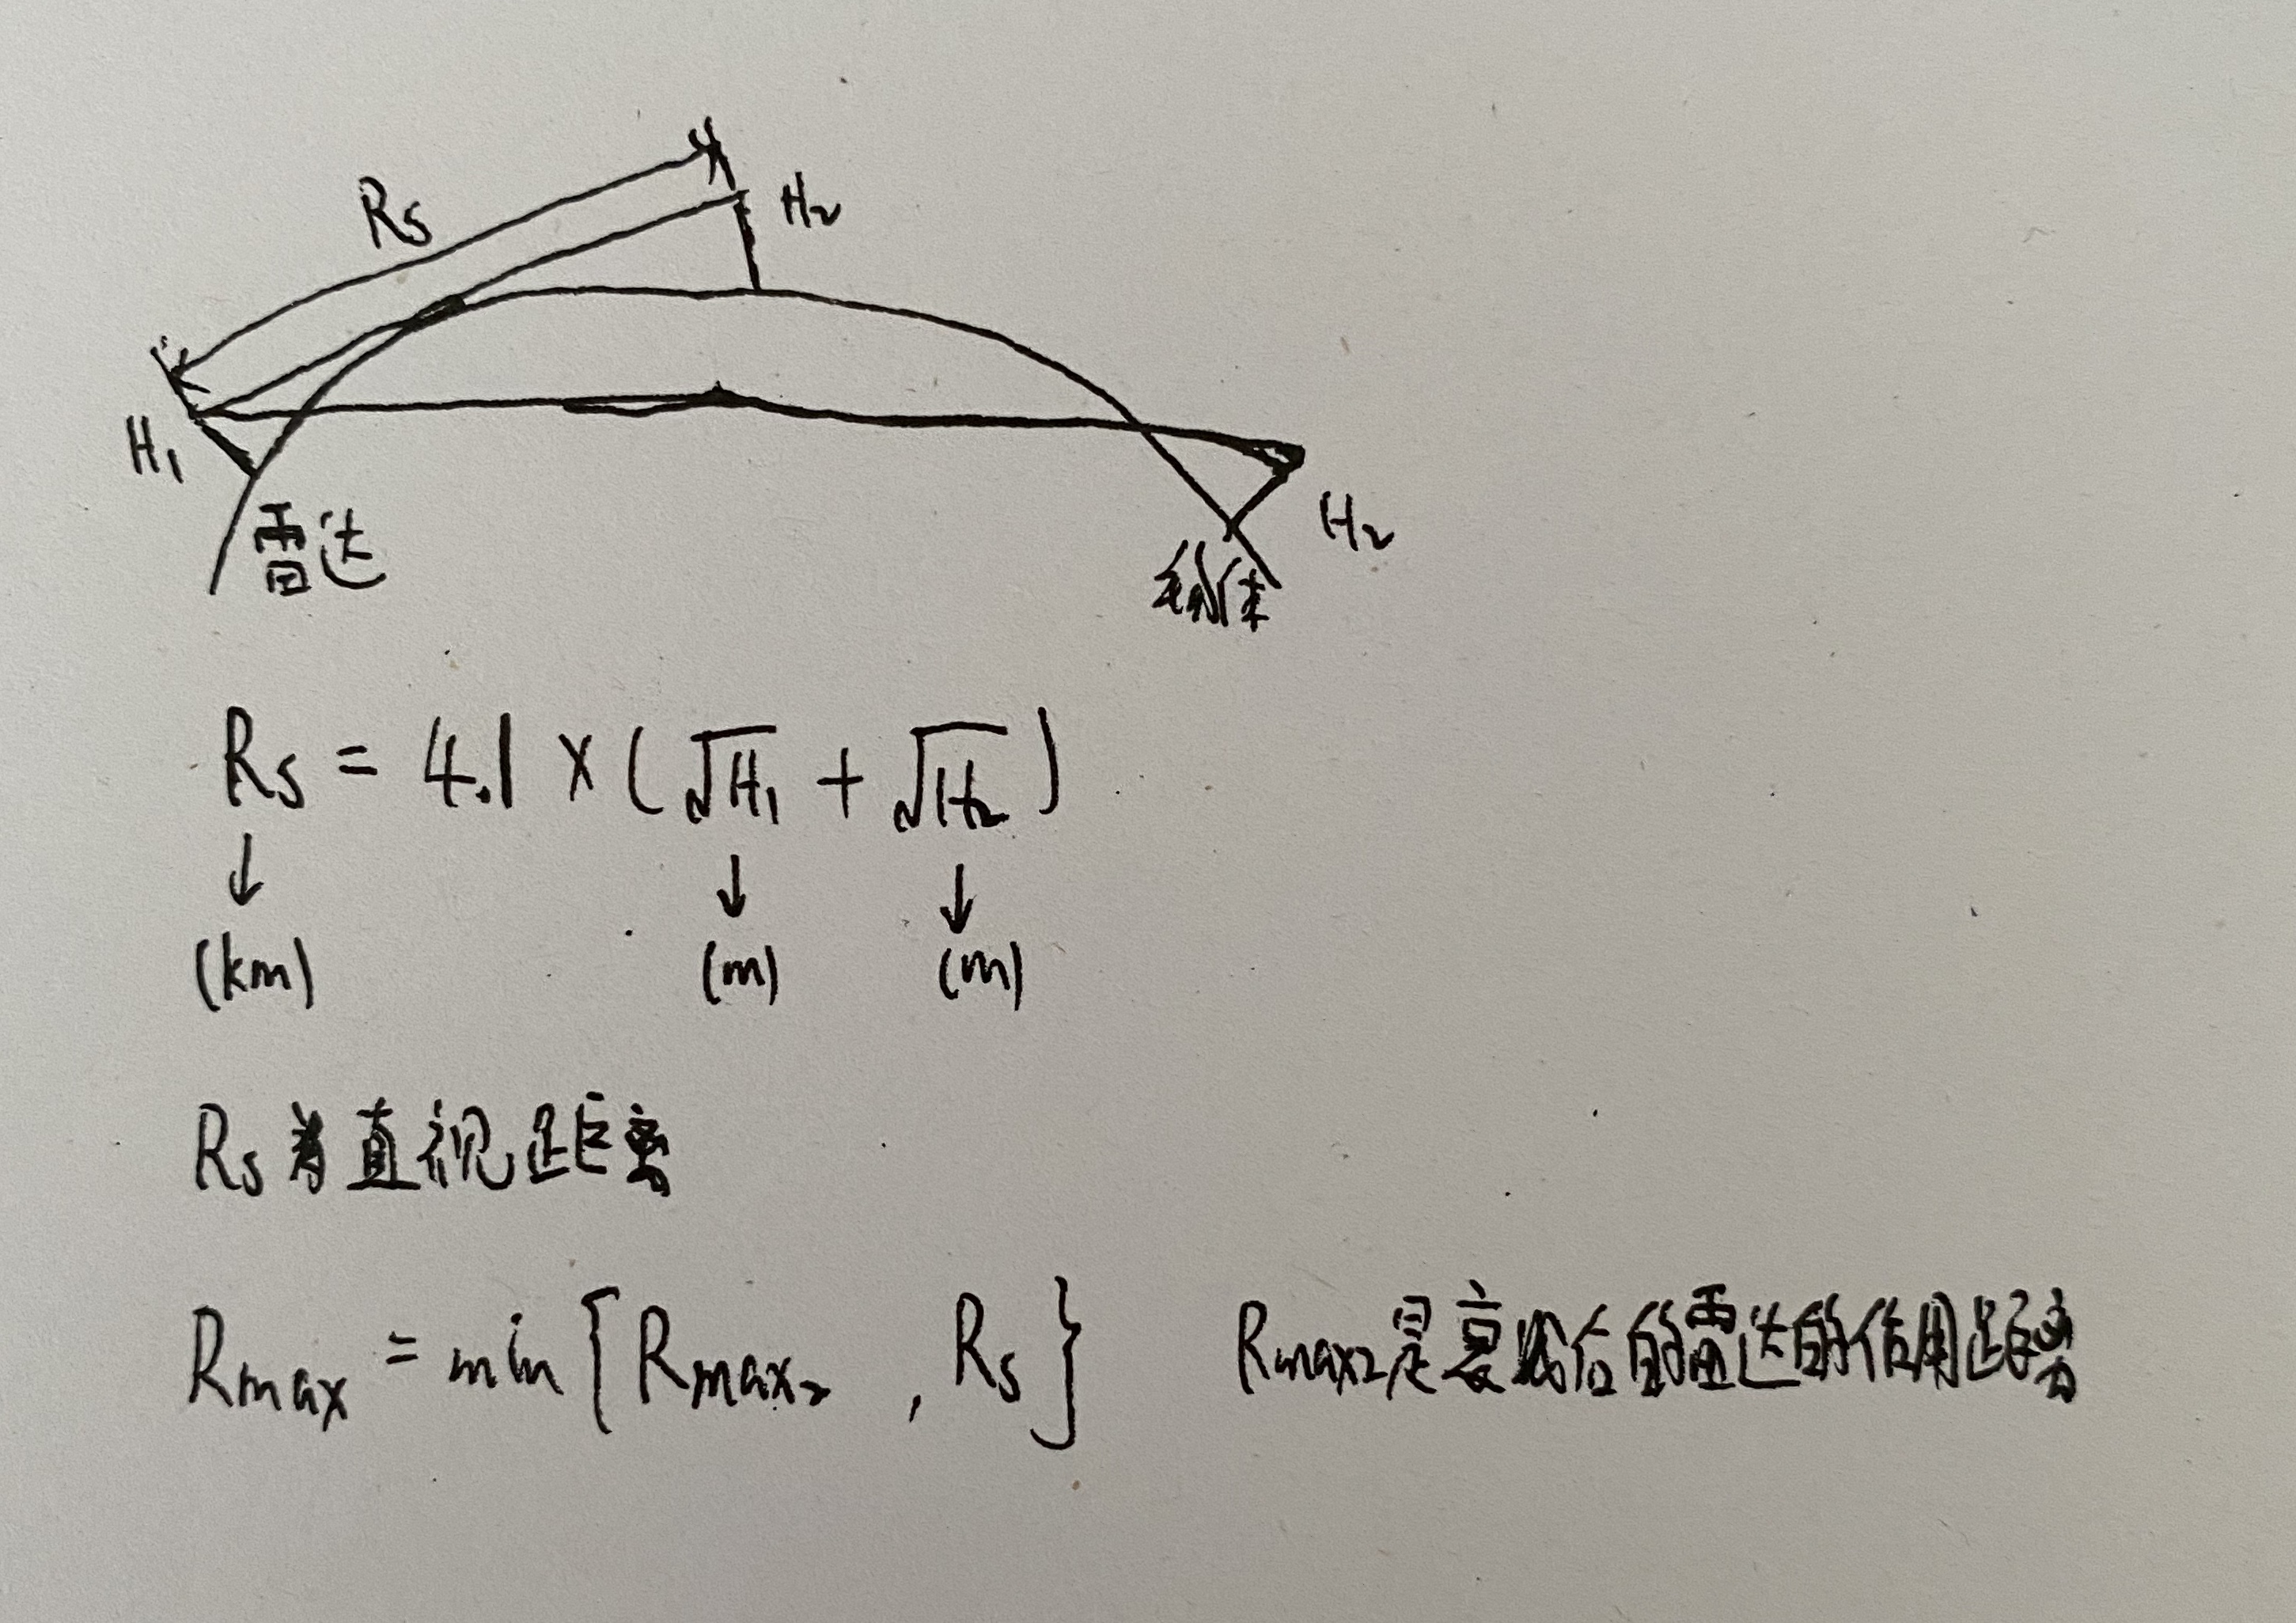 Rs
H₂
H₁
雷达
H₂
Rs = 4.1 × (√H₁ + √H₂)
↓ ↓ ↓
(km) (m) (m)
Rs为直视距离
Rmax = min{Rmax₂, Rs} Rmax₂是衰减后的雷达的作用距离